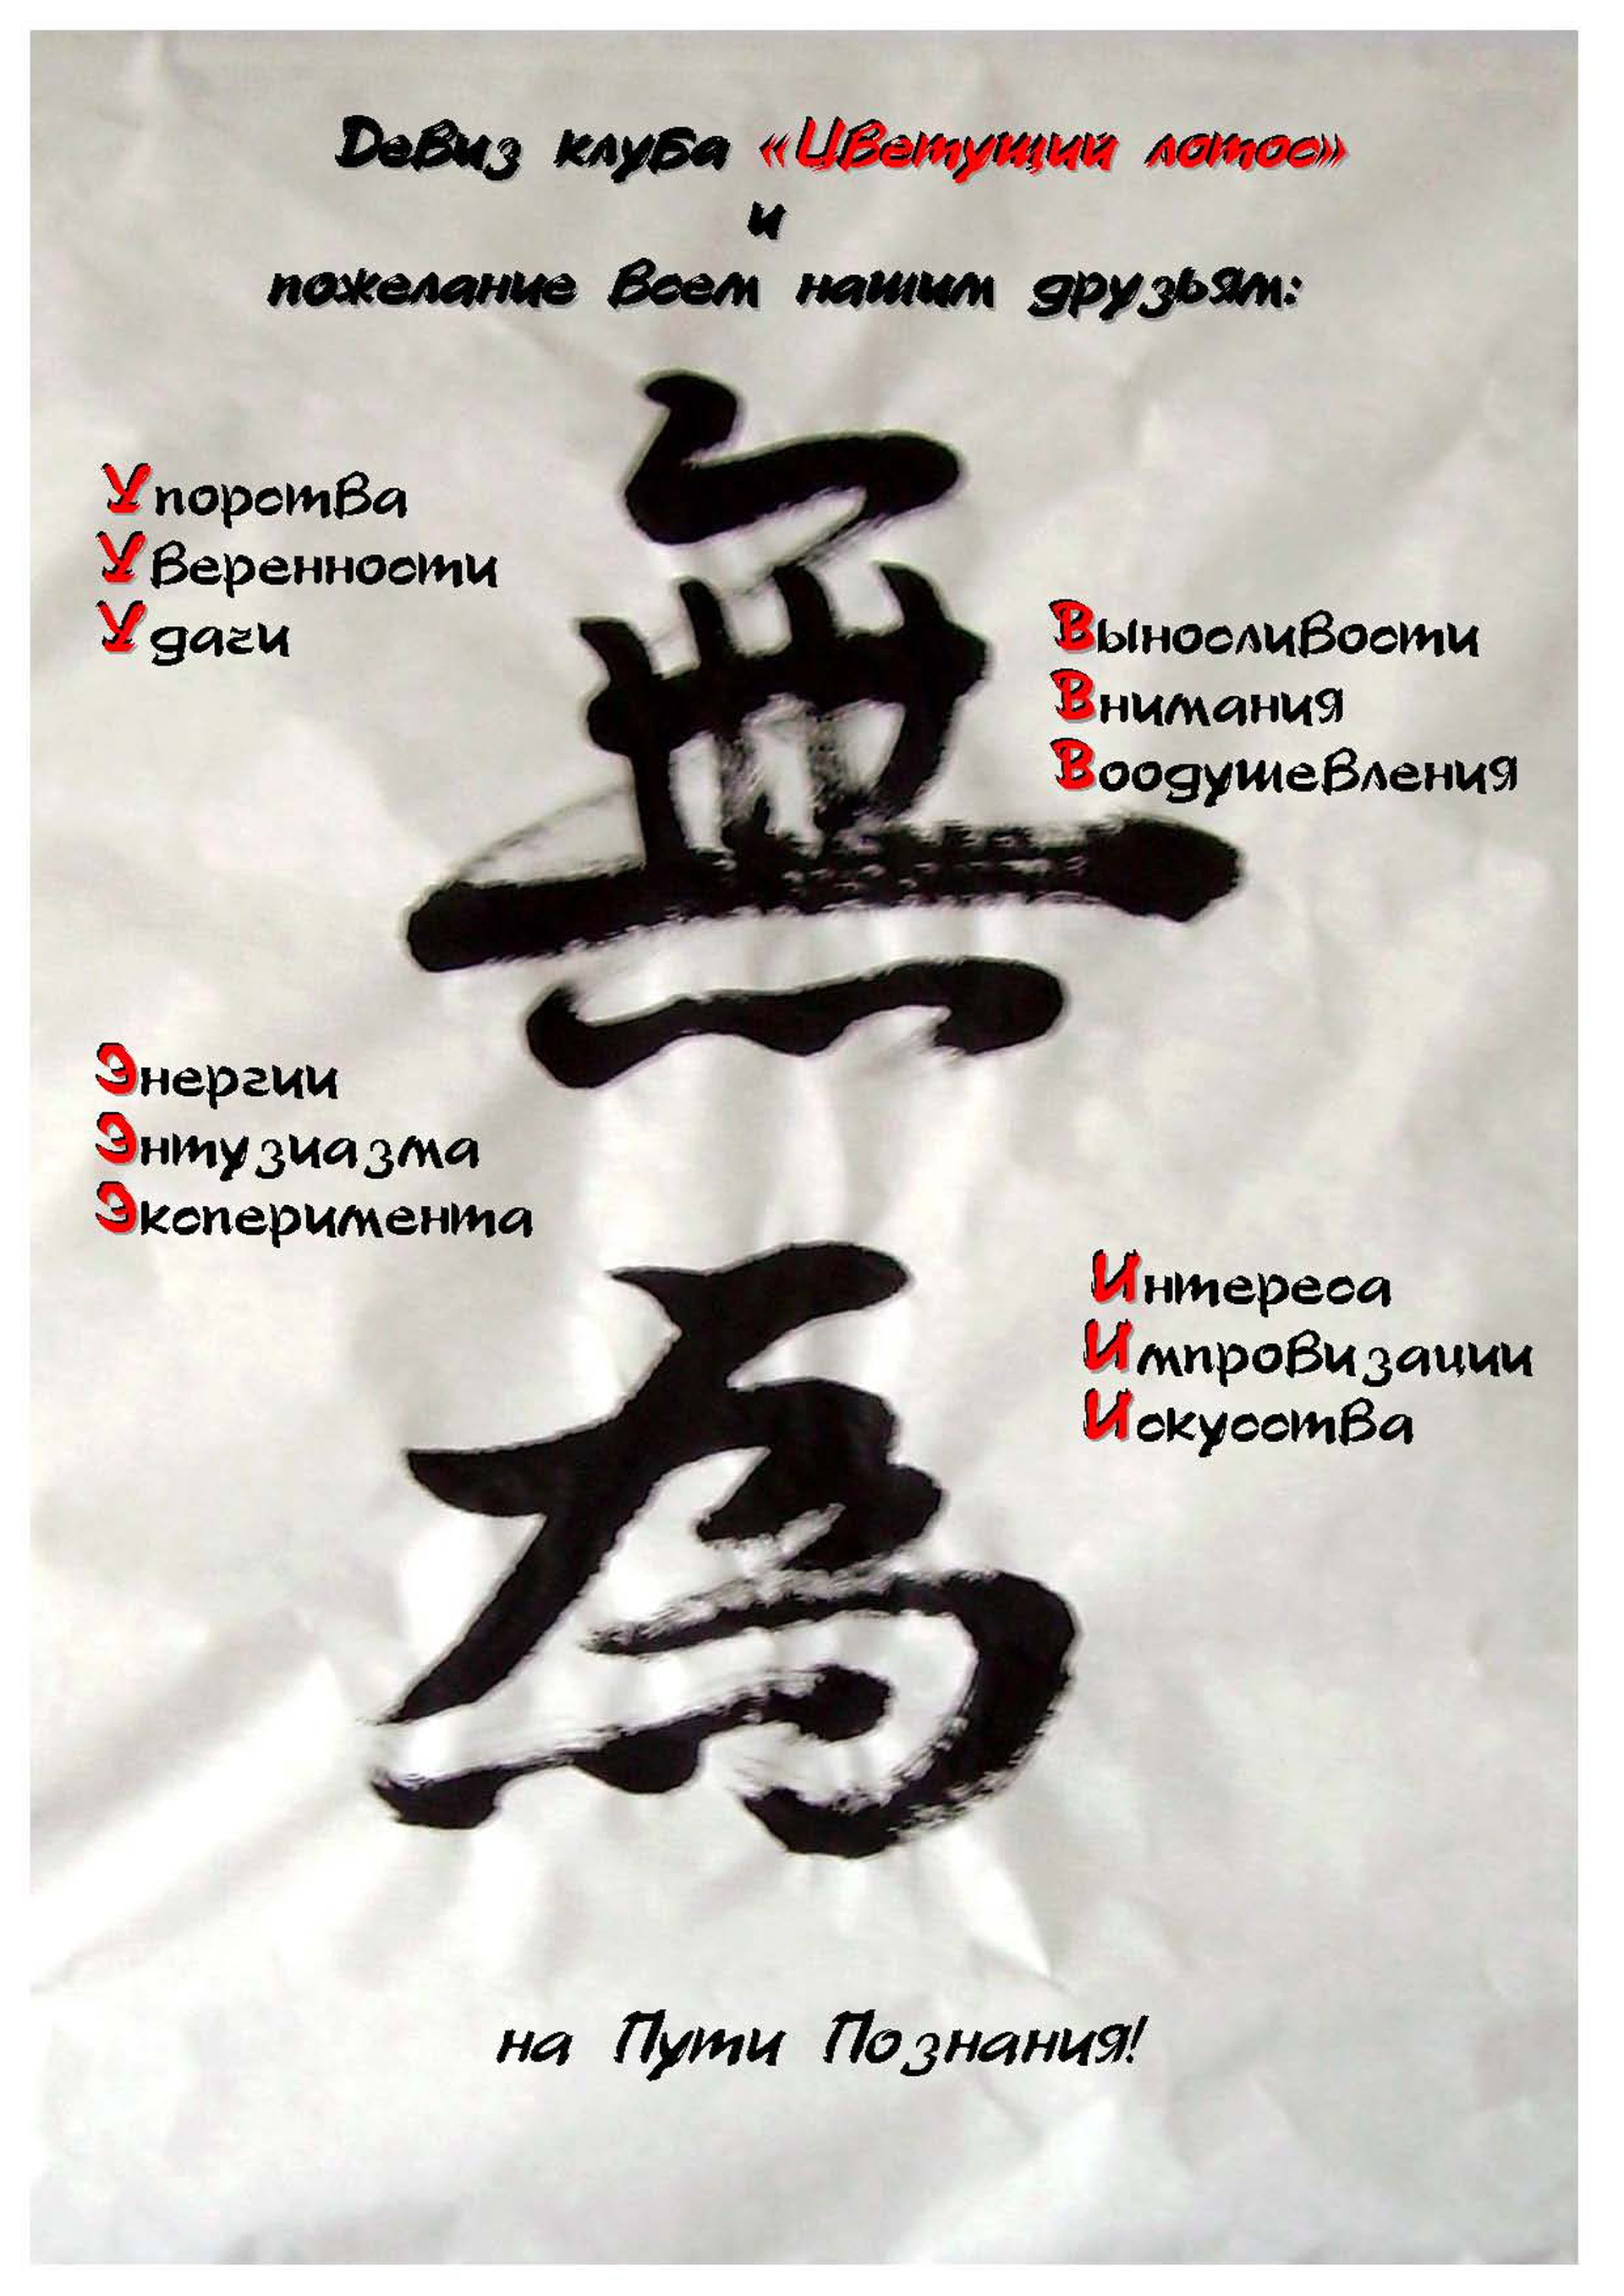 Девиз клуба «Цветущий лотос»
и
пожелание всем нашим друзьям:
無
Упорства
Уверенности
Удачи
Выносливости
Внимания
Воодушевления
Энергии
Энтузиазма
Эксперимента
為
Интереса
Импровизации
Искусства
на Пути Познания!